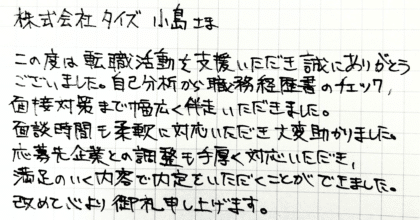 株式会社タイズ 小島さま
この度は転職活動を支援いただき誠にありがとう
ございました。自己分析から職務経歴書のチェック、
面接対策まで幅広く伴走いただきました。
面談時間も柔軟に対応いただき大変助かりました。
応募先企業との調整も手厚く対応いただき、
満足のいく内容で内定をいただくことができました。
改めて心より御礼申し上げます。